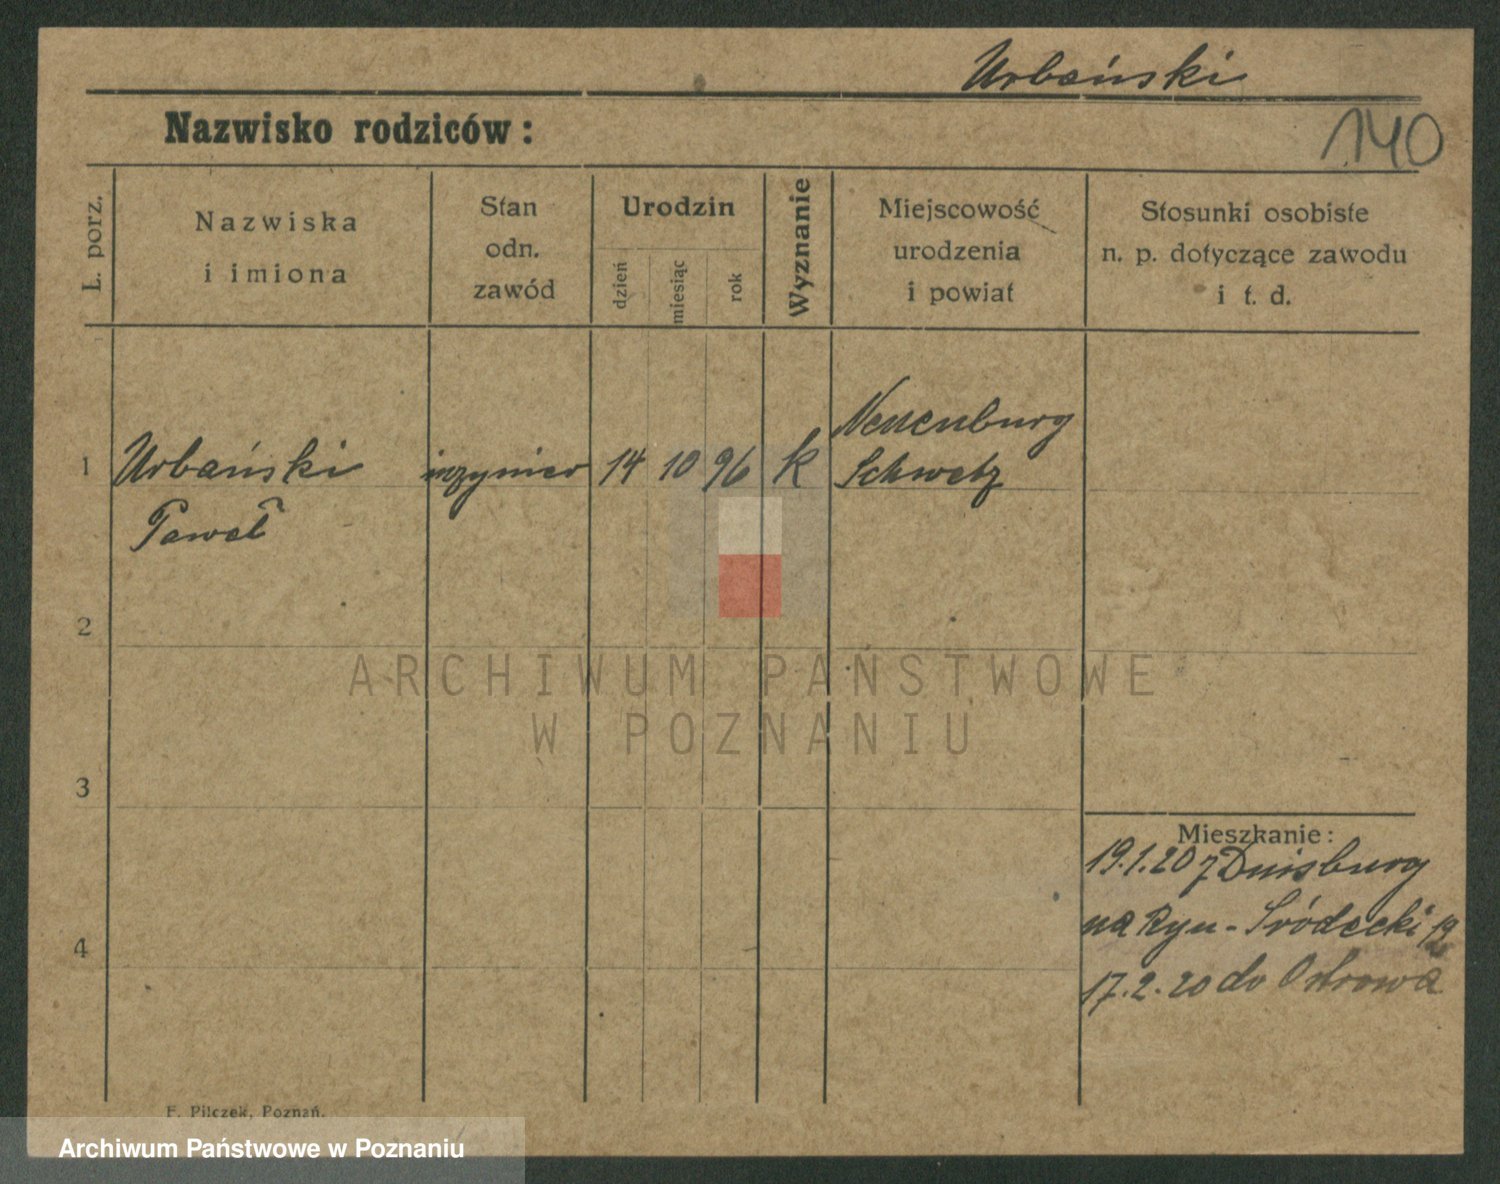 Urbański
Nazwisko rodziców:
140
L. porz.
Nazwiska
i imiona
Stan
odn.
zawód
Urodzin
dzień
miesiąc
rok
Wyznanie
Miejscowość
urodzenia
i powiat
Stosunki osobiste
n. p. dotyczące zawodu
i t. d.
1
Urbański
Paweł
inżynier
14
10
96
k
Neuenburg
Schwetz
2
3
4
Mieszkanie:
19.1.20 z Duisburg
na Ryn-Śródecki 19
17.2.20 do Ostrowa
F. Pilczek, Poznań.
ARCHIWUM PAŃSTWOWE
W POZNANIU
Archiwum Państwowe w Poznaniu